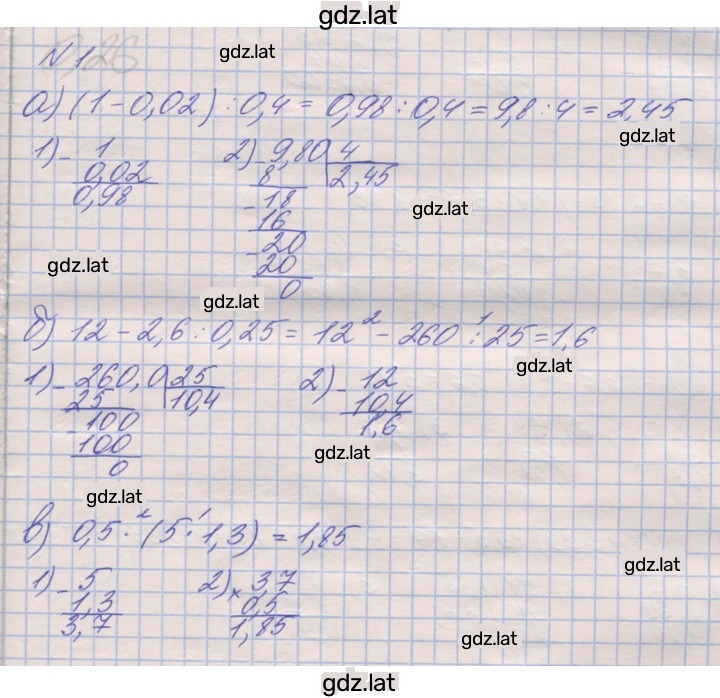 gdz.lat
N 1
gdz.lat
а) (1 - 0,02) : 0,4 = 0,98 : 0,4 = 9,8 : 4 = 2,45
gdz.lat
1) - 1 2) - 9,80 | 4
0,02 8 2,45
0,98 - 18
16
gdz.lat
- 20
20
gdz.lat
0
gdz.lat
б) 12 - 2,6 : 0,25 = 12 ² - 260 ¹ : 25 = 1,6
gdz.lat
1) - 260,0 | 25 2) - 12
25 10,4 10,4
- 100 1,6
100
gdz.lat
0
gdz.lat
в) 0,5 · ² (5 · ¹ 1,3) = 1,85
gdz.lat
1) - 5 2) × 3,7
1,3 0,5
3,7 1,85
gdz.lat
gdz.lat